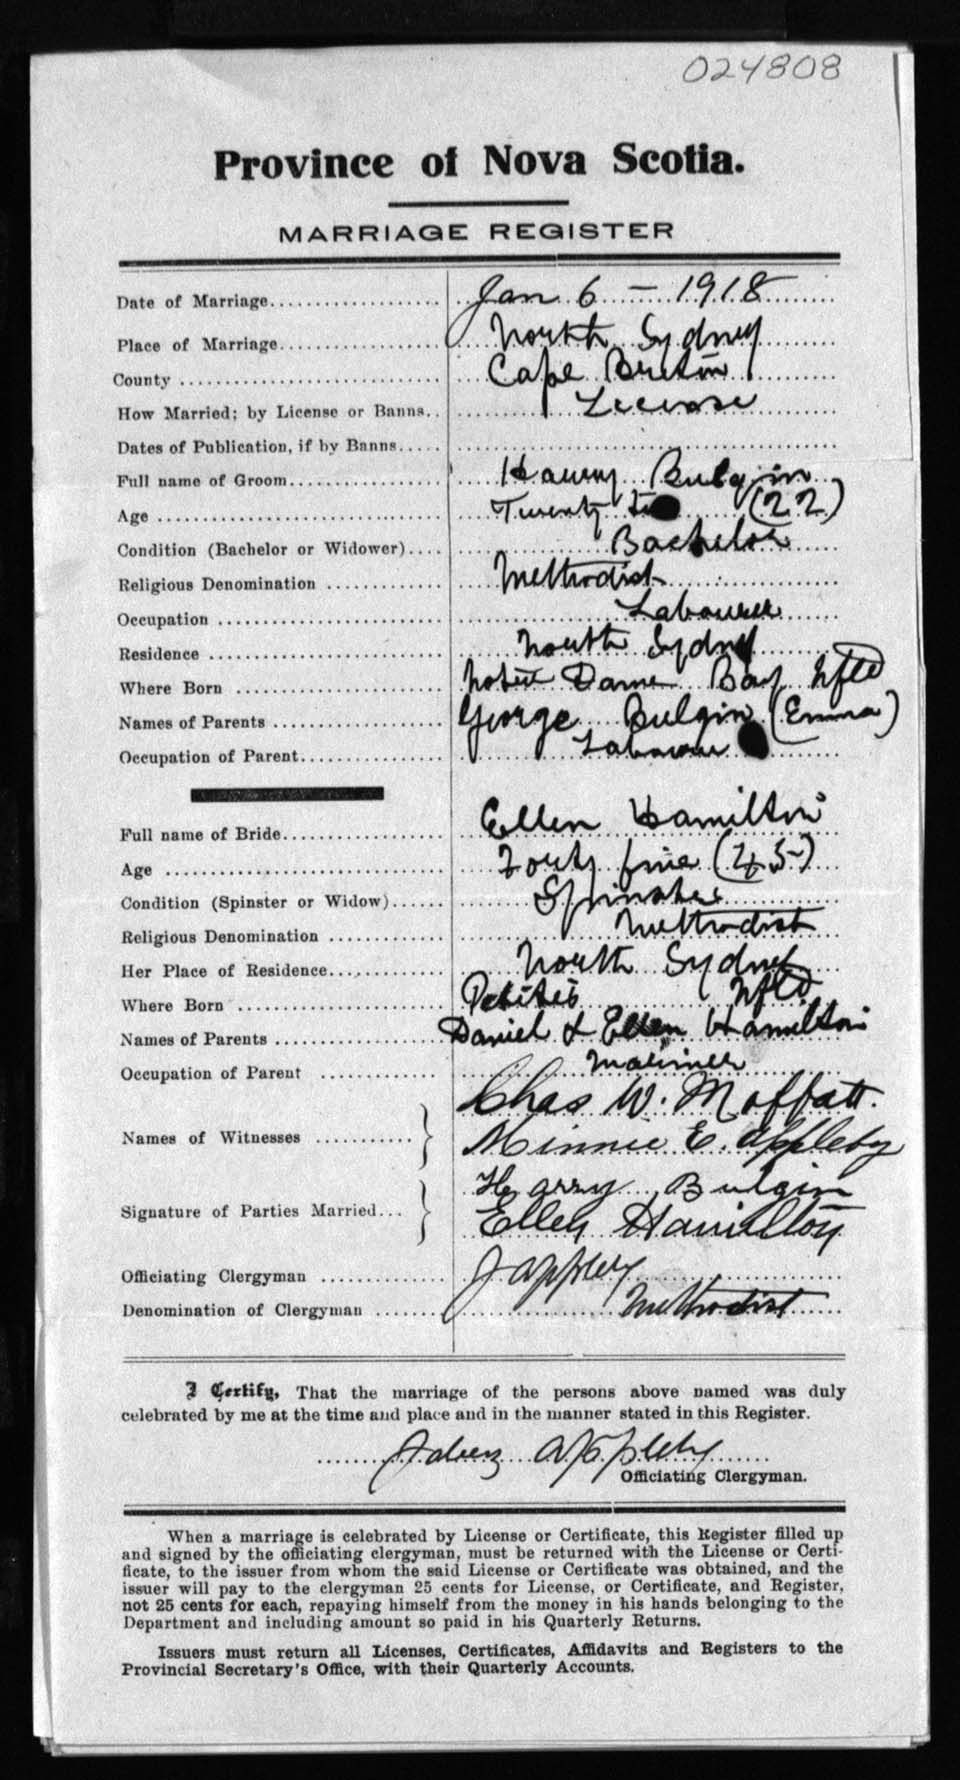 024808
Province of Nova Scotia.
MARRIAGE REGISTER
Date of Marriage................... Jan 6 - 1918
Place of Marriage.................. North Sydney
County ............................ Cape Breton
How Married; by License or Banns.. License
Dates of Publication, if by Banns.....
Full name of Groom................. Harry Bulgin
Age ............................... Twenty two (22)
Condition (Bachelor or Widower).... Bachelor
Religious Denomination ............ Methodist
Occupation ........................ Labourer
Residence ......................... North Sydney
Where Born ........................ Notre Dame Bay Nfld
Names of Parents .................. George Bulgin (Emma)
Occupation of Parent............... Labourer
Full name of Bride................. Ellen Hamilton
Age ............................... Forty five (45)
Condition (Spinster or Widow)...... Spinster
Religious Denomination ............ Methodist
Her Place of Residence............. North Sydney
Where Born ........................ Nfld
Names of Parents .................. Daniel & Ellen Hamilton
Occupation of Parent .............. Mariner
Chas W. Moffatt.
Names of Witnesses ............ } Minnie E. Appleby
Harry Bulgin
Signature of Parties Married... } Ellen Hamilton
Officiating Clergyman ............. J Appleby
Denomination of Clergyman ........ Methodist
I Certify, That the marriage of the persons above named was duly
celebrated by me at the time and place and in the manner stated in this Register.
Jabez Appleby
Officiating Clergyman.
When a marriage is celebrated by License or Certificate, this Register filled up
and signed by the officiating clergyman, must be returned with the License or Certi-
ficate, to the issuer from whom the said License or Certificate was obtained, and the
issuer will pay to the clergyman 25 cents for License, or Certificate, and Register,
not 25 cents for each, repaying himself from the money in his hands belonging to the
Department and including amount so paid in his Quarterly Returns.
Issuers must return all Licenses, Certificates, Affidavits and Registers to the
Provincial Secretary's Office, with their Quarterly Accounts.